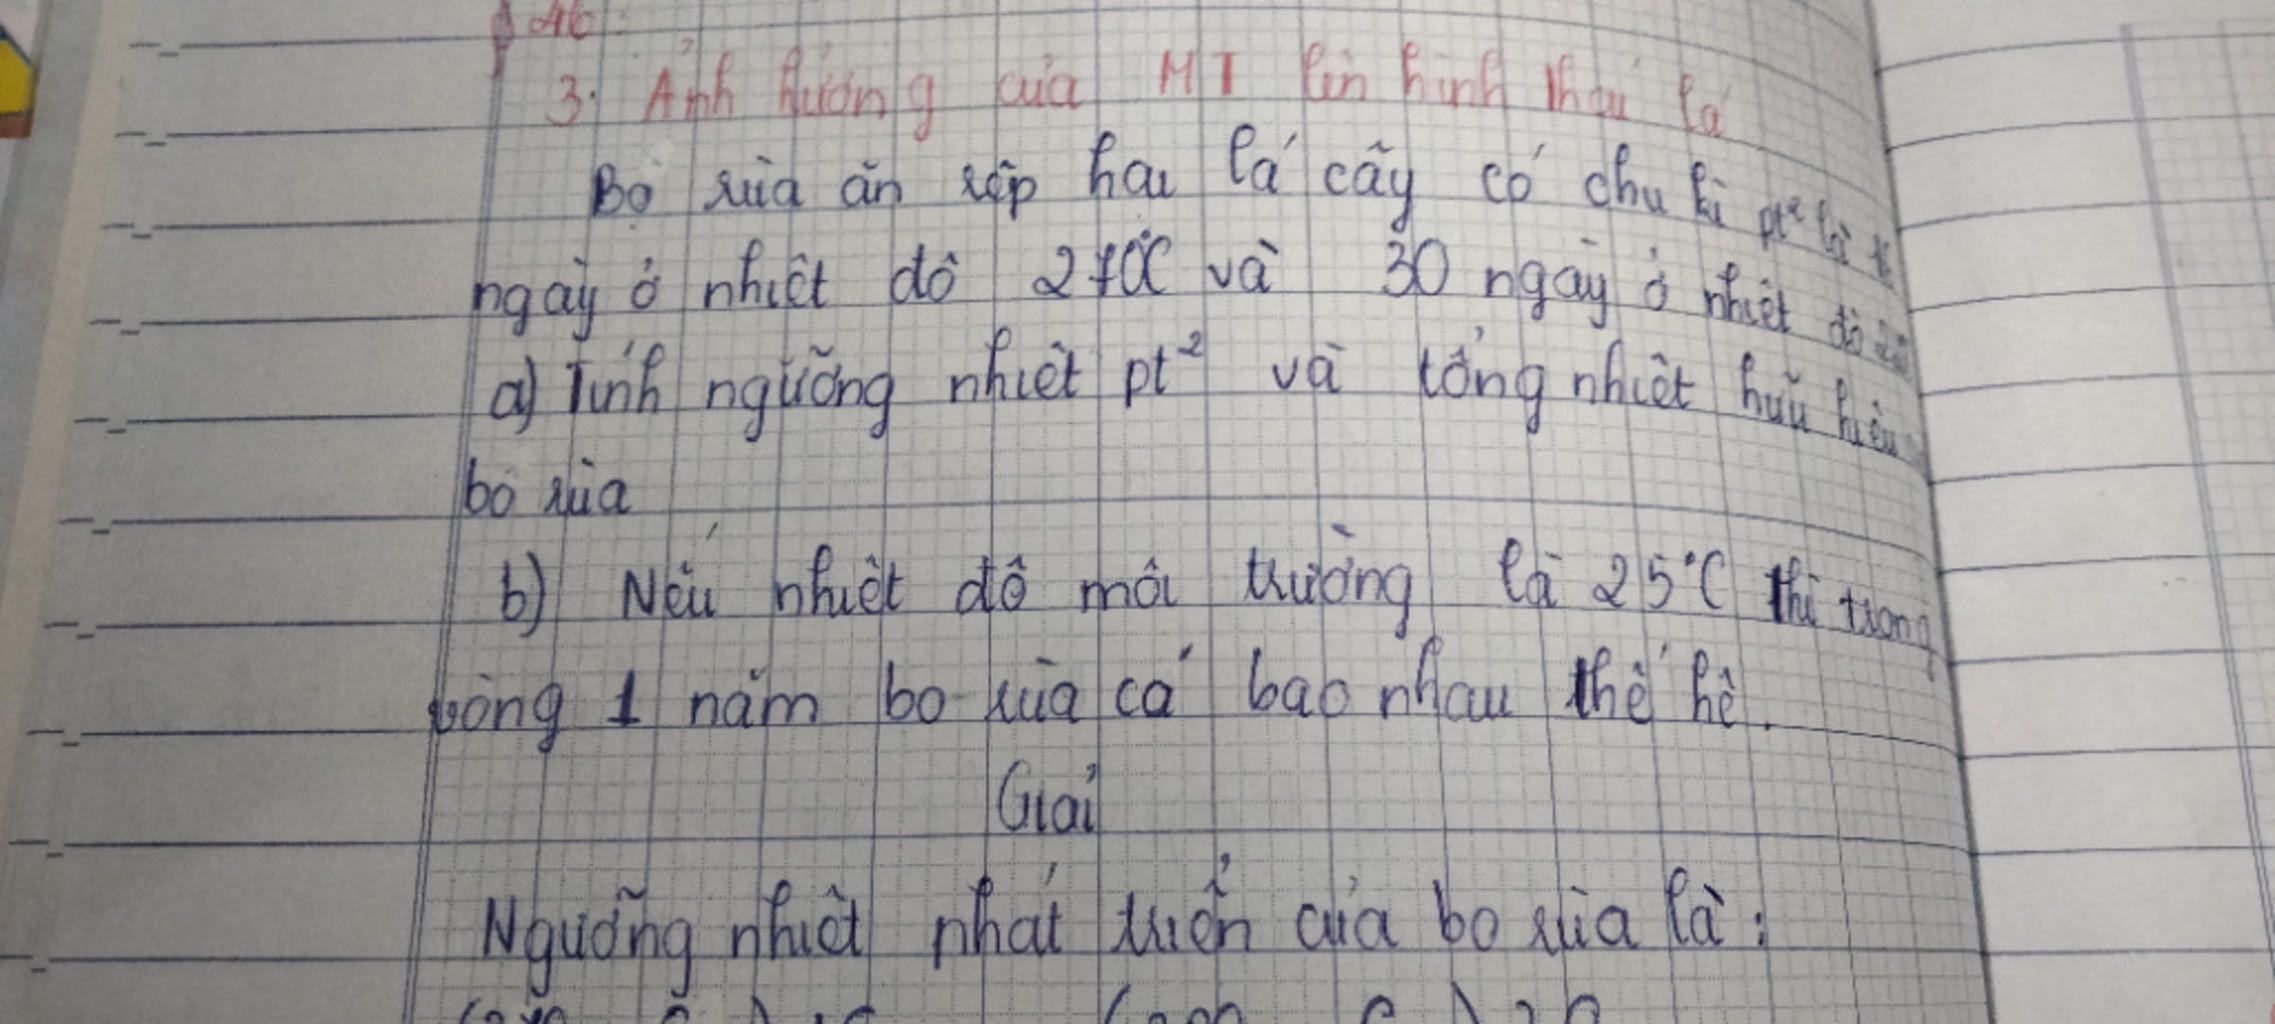 3. Ảnh hưởng của MT lên hình thái lá
Bọ rùa ăn rệp hại lá cây có chu kì pt² là
ngày ở nhiệt độ 27°C và 30 ngày ở nhiệt độ
a) Tính ngưỡng nhiệt pt² và tổng nhiệt hữu hiệu
bọ rùa
b) Nếu nhiệt độ môi trường là 25°C thì trong
vòng 1 năm bọ rùa có bao nhiêu thế hệ.
Giải
Ngưỡng nhiệt phát triển của bọ rùa là: